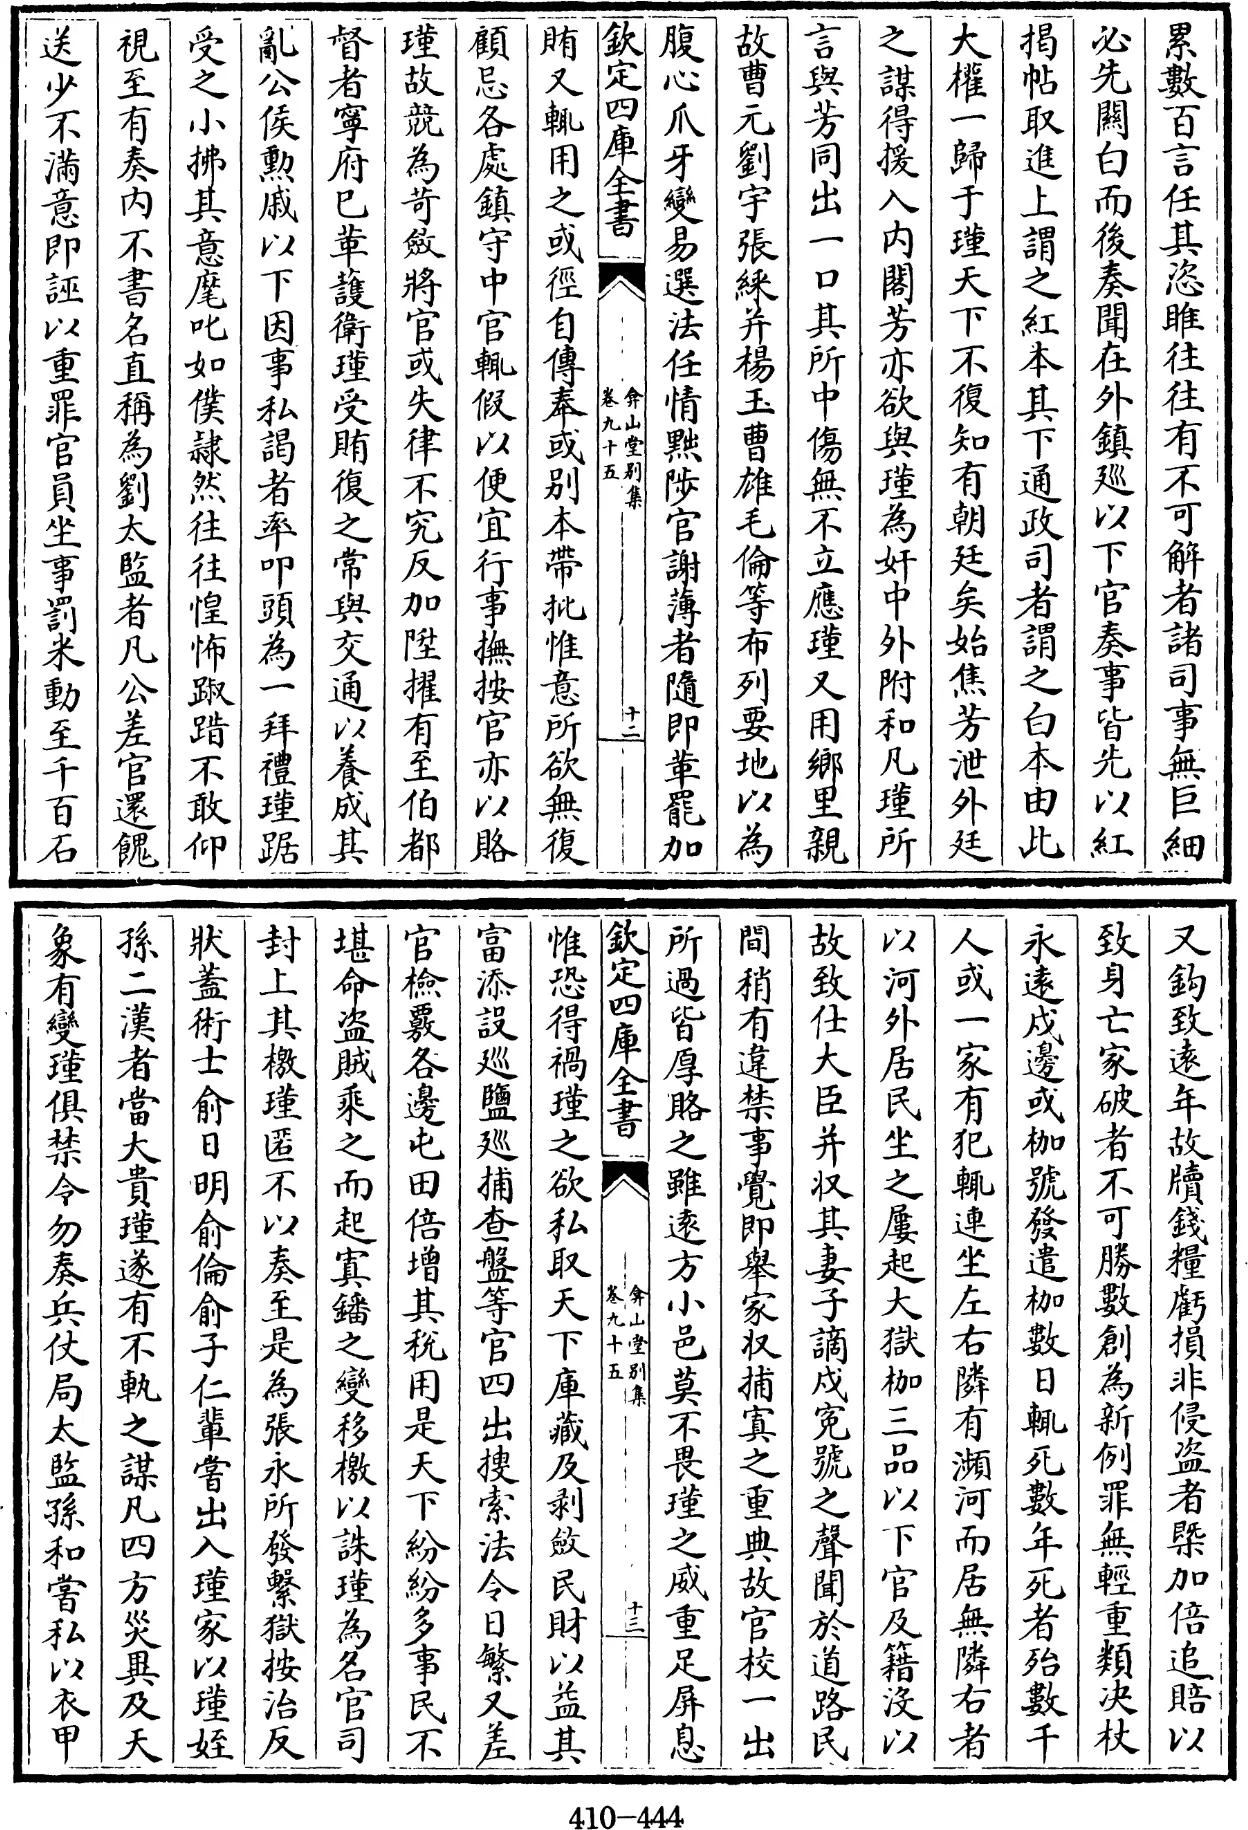 累數百言任其恣睢往往有不可解者諸司事無巨細
必先關白而後奏聞在外鎮廵以下官奏事皆先以紅
揭帖取進上謂之紅本其下通政司者謂之白本由此
大權一歸于瑾天下不復知有朝廷矣始焦芳泄外廷
之謀得援入内閣芳亦欲與瑾為奸中外附和凡瑾所
言與芳同出一口其所中傷無不立應瑾又用鄉里親
故曹元劉宇張綵并楊玉曹雄毛倫等布列要地以為
腹心爪牙變易選法任情黜陟官謝薄者隨即革罷加
欽定四庫全書
弇山堂别集
卷九十五
十二
賄又輒用之或徑自傳奉或别本帶批惟意所欲無復
顧忌各處鎮守中官輒假以便宜行事撫按官亦以賂
瑾故競為苛斂將官或失律不究反加陞擢有至伯都
督者寧府已革護衛瑾受賄復之常與交通以養成其
亂公侯勲戚以下因事私謁者率叩頭為一拜禮瑾踞
受之小拂其意麾叱如僕隷然往往惶怖踧踖不敢仰
視至有奏内不書名直稱為劉太監者凡公差官還餽
送少不滿意即誣以重罪官員坐事罰米動至千百石
又鈎致逺年故牘錢糧虧損非侵盗者槩加倍追賠以
致身亡家破者不可勝數創為新例罪無輕重類决杖
永逺戍邊或枷號發遣枷數日輒死數年死者殆數千
人或一家有犯輒連坐左右隣有瀕河而居無隣右者
以河外居民坐之屢起大獄枷三品以下官及籍沒以
故致仕大臣并収其妻子謫戍寃號之聲聞於道路民
間稍有違禁事覺即舉家収捕寘之重典故官校一出
所過皆厚賂之雖逺方小邑莫不畏瑾之威重足屏息
欽定四庫全書
弇山堂别集
卷九十五
十三
惟恐得禍瑾之欲私取天下庫藏及剥斂民財以益其
富添設廵鹽廵捕查盤等官四出捜索法令日繁又差
官檢覈各邊屯田倍增其稅用是天下紛紛多事民不
堪命盗賊乘之而起寘鐇之變移檄以誅瑾為名官司
封上其檄瑾匿不以奏至是為張永所發繫獄按治反
狀蓋術士俞日明俞倫俞子仁輩嘗出入瑾家以瑾姪
孫二漢者當大貴瑾遂有不軌之謀凡四方災異及天
象有變瑾俱禁令勿奏兵仗局太監孫和嘗私以衣甲
410-444